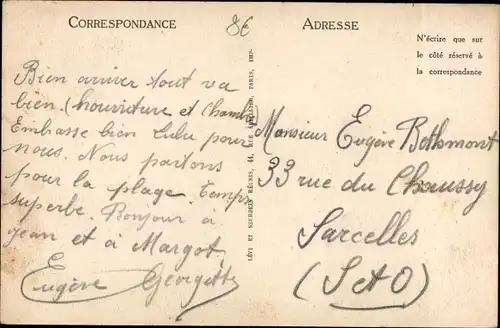 CORRESPONDANCE
8€
ADRESSE
N'écrire que sur
le côté réservé à
la correspondance
Bien arriver tout va
bien (nourriture et Chambre)
Embasse bien Lulu pour
nous. Nous partons
pour la plage. Temps
superbe. Bonjour à
Jean et à Margot.
Eugène Georgette
LÉVI ET NEURDEIN RÉUNIS, 44, RUE LETELLIER, PARIS, IMP.
Monsieur Eugène Bothmont
33 rue du Chaussy
Sarcelles
(S et O)